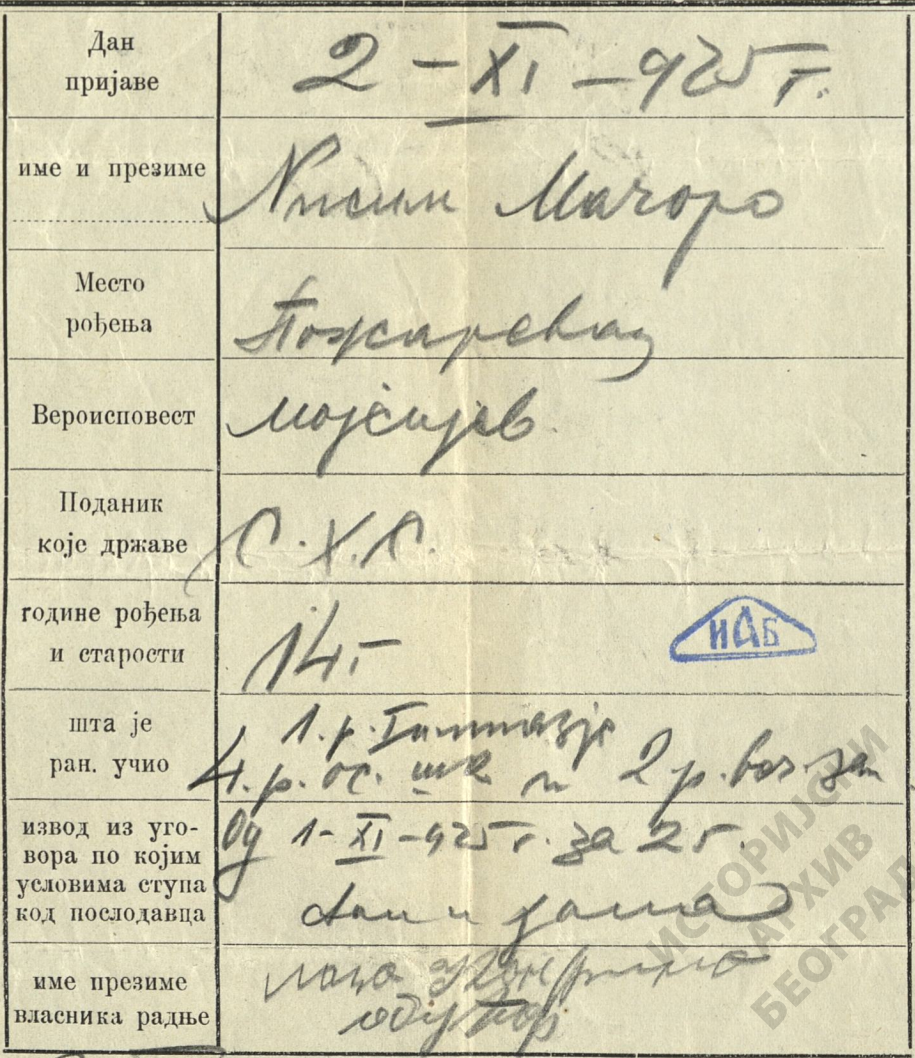 Дан
пријаве
2 - XI - 925 г.
име и презиме
Нисим Мачоро
Место
рођења
Пожаревац
Вероисповест
мојсијев
Поданик
које државе
С.Х.С.
године рођења
и старости
14 г
ИАБ
шта је
ран. учио
1. р. Гимназије
4. р. ос. шк и 2 р. веч.
извод из уго-
вора по којим
условима ступа
код послодавца
Од 1 - XI - 925 г. за 2 г.
Стан и храна
име презиме
власника радње
ИСТОРИЈСКИ
АРХИВ
БЕОГРАД